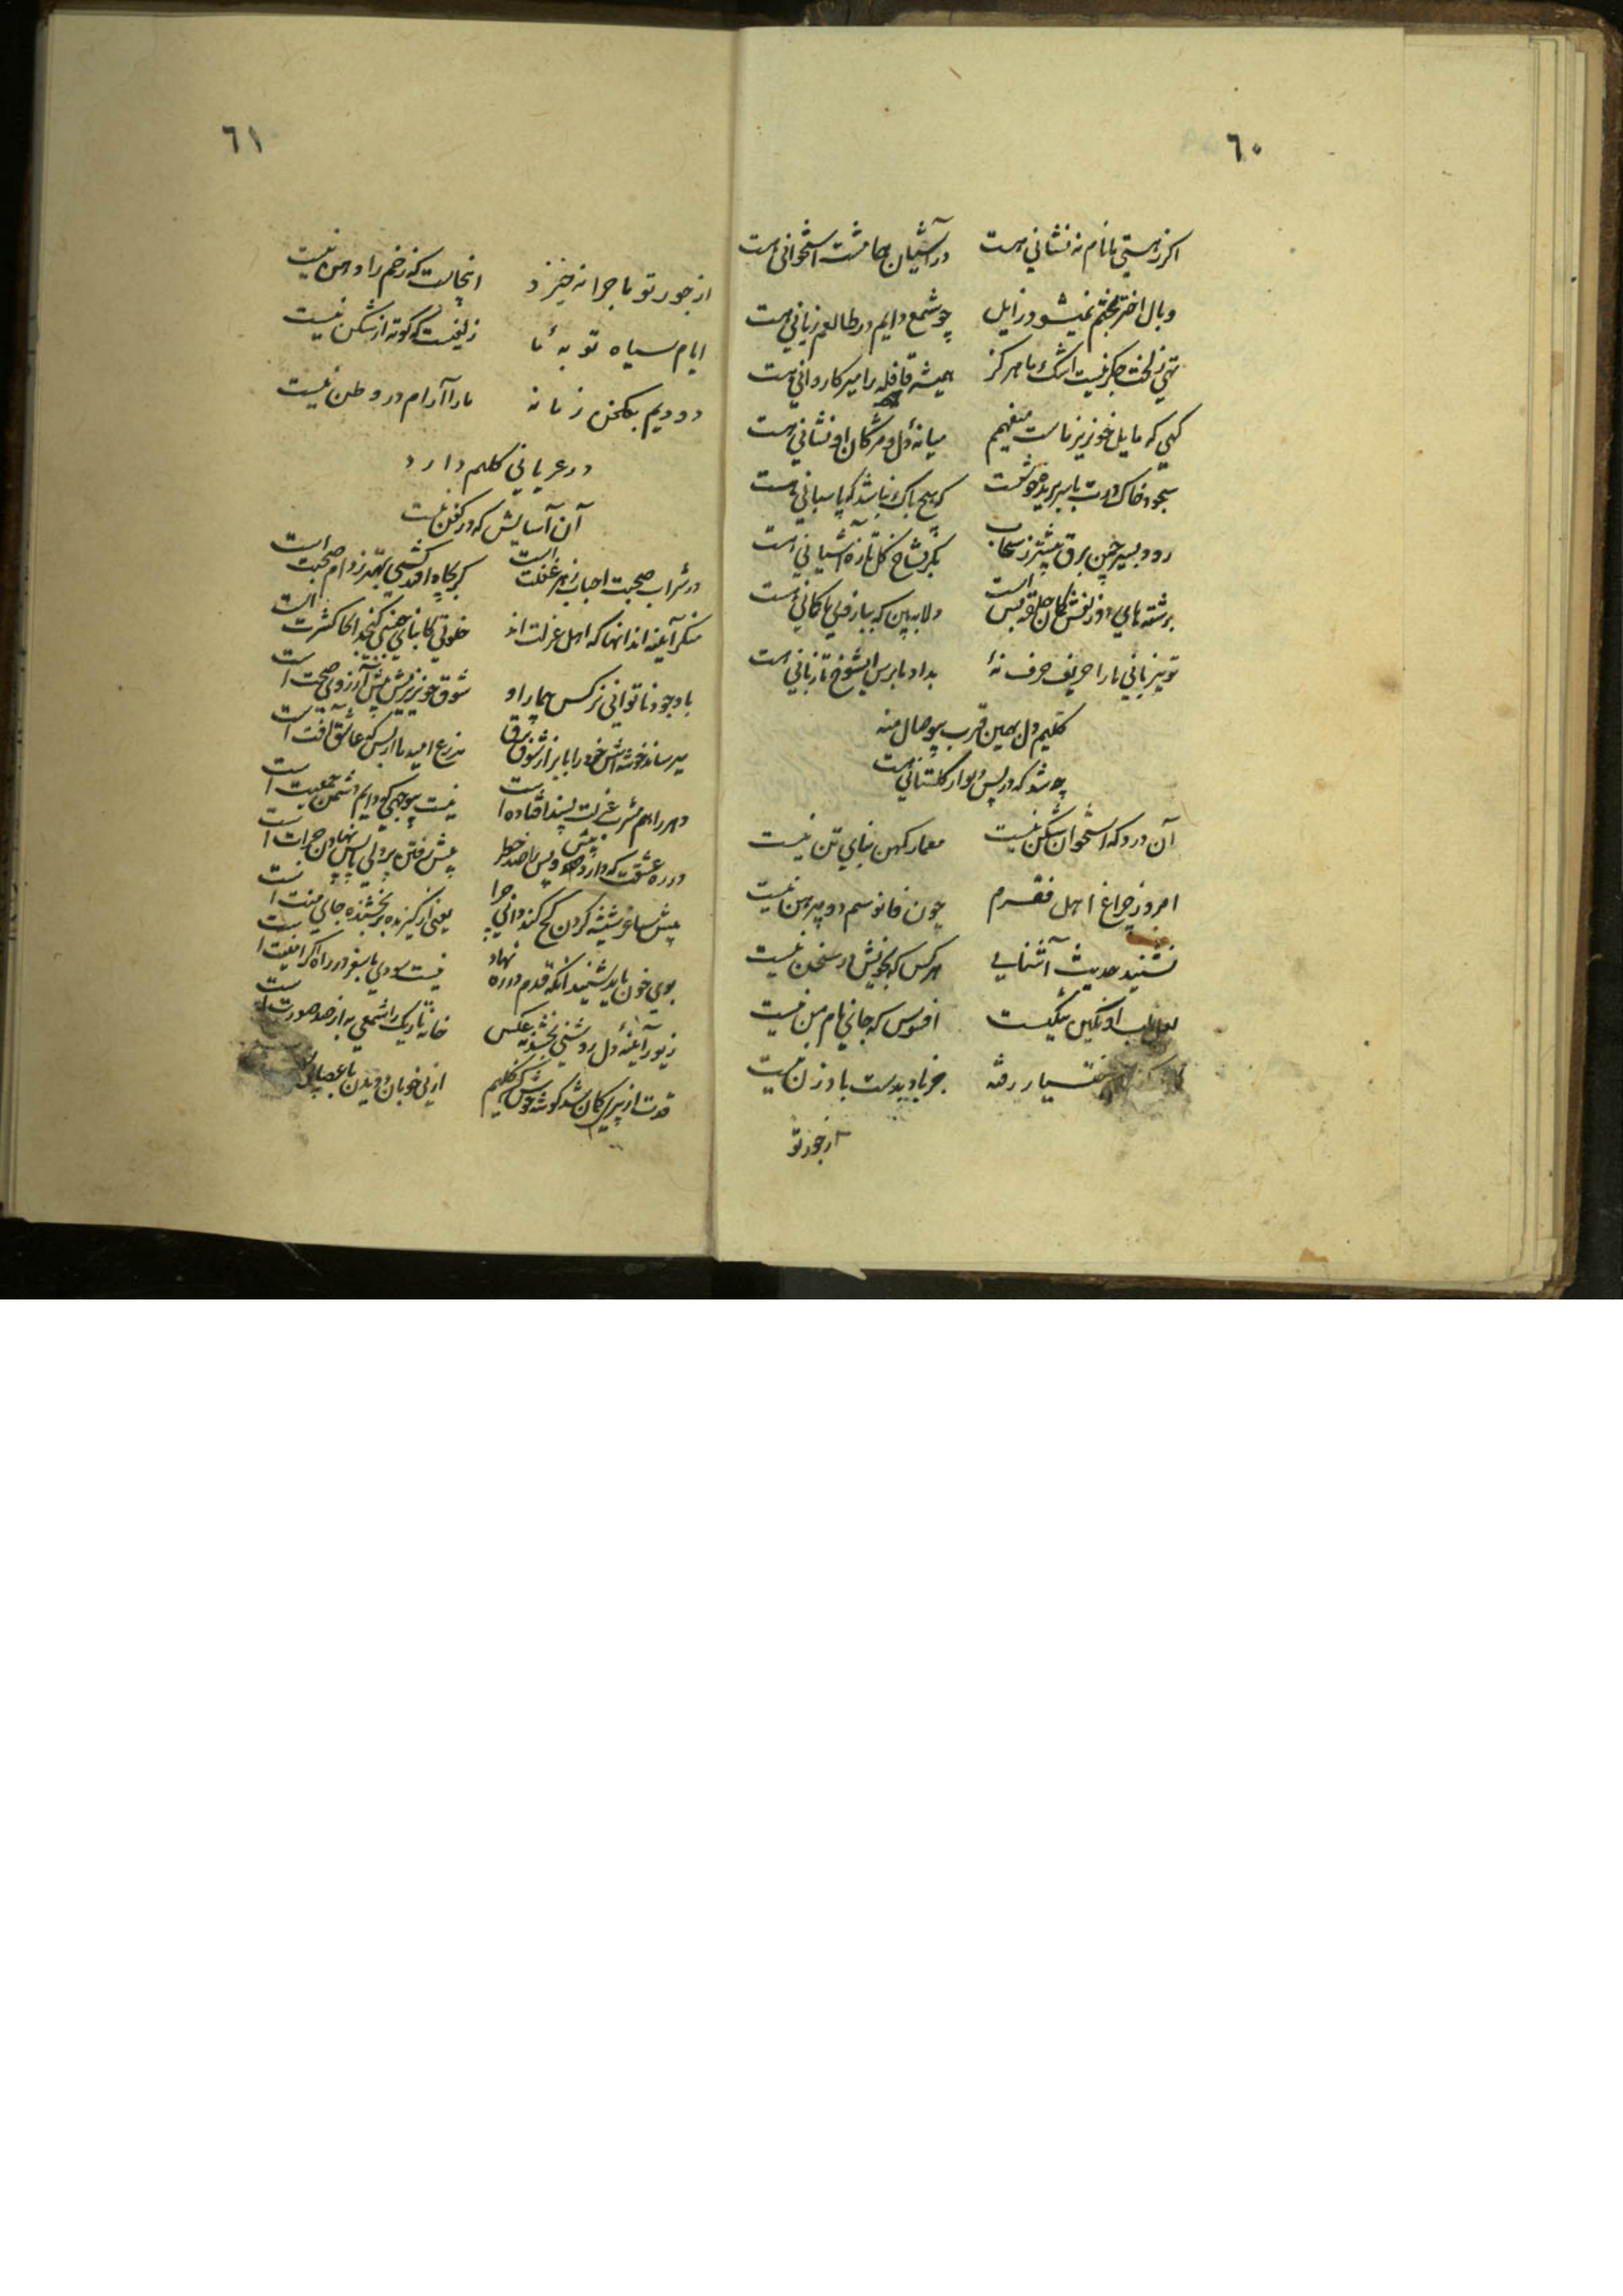 ٦٠
اکر ز هستی ما نام نه نشانی هست در آشیان هما مشت استخوانی هست
وبال اختر بختم نمیشود زایل چو شمع دایم در طالعم زبانی هست
تهی ز لخت جکر نیست اشک ما هرکز همیشه قافله را میر کاروانی هست
کهی که مایل خونریز ماست میفهمم میانهٔ دل و مژکان او نشانی هست
سجود خاک درت با سر بریده خوشست که هیچ باک نباشد که پاسبانی هست
رود بسیر چمن برق پیشتر ز سحاب بکر بشاخ کل تازه آشیانی هست
برشته های دو زلفش کمان حلقه بس است دلا به بین که بباریکی کمانی هست
تو بیزبانی ما را حریف حرف نهٔ بداد ما برس ایشوخ تا زبانی هست
کلیم دل بهمین قرب بیوصال منه
چه شد که در پس دیوار کلستانی هست
آن درد که استخوان شکن نیست معمار کهن بنای تن نیست
امروز چراغ اهل فقرم چون فانوسم دو پیرهن نیست
نشنید حدیث آشنایی هر کس که بخویش در سخن نیست
لعل لب او نکین نیکیست افسوس که جای نام من نیست
رفته جز باد بدست بادزن نیست
از جور تو
٦١
از جور تو ماجرا نه خیزد اینجاست که زخم را دهن نیست
ایام سیاه توبهٔ ما زلفیست که کوته از شکن نیست
دودیم بکلخن زمانه ما را آرام در وطن نیست
در عریانی کلیم دارد
آن آسایش که در کفن نیست
در شراب صحبت احباب زهر غفلت است کر بچاه افتد کسی بهتر ز دام صحبت است
منکر آیینه اند انها که اهل عزلت اند خلوتی کانجا کسی کنجد انجا کثرت است
با وجود ناتوانی نرکس بیمار او شوق خونریزیش بیش از آرزوی صحت است
میرساند خوشه اش خود را بابر از شوق برق مزرع امید ما از بسکه عاشق آفت است
دهر را هم مشرب عزلت پسند افتاده است نیست بیوجهی که دایم دشمن جمعیت است
در ره عشقت که دارد پیش و پس را صد خطر پیش رفتن بر دلی پا پس نهادن جرات است
پیش ساغر شیشه کردن کج کند دانی چرا یعنی از کیرنده بر بخشنده جای منت است
بوی خون باید شنید انکه قدم در ره نهاد نیست سودی با سفر در راه اکر امنیت است
زیور آیینهٔ دل روشنی بخشد نه عکس خانه تاریک را شمعی به از صد صورت است
قدت از پیری کمان شد کوشه کن کلیم از پی خوبان دویدن با عصا